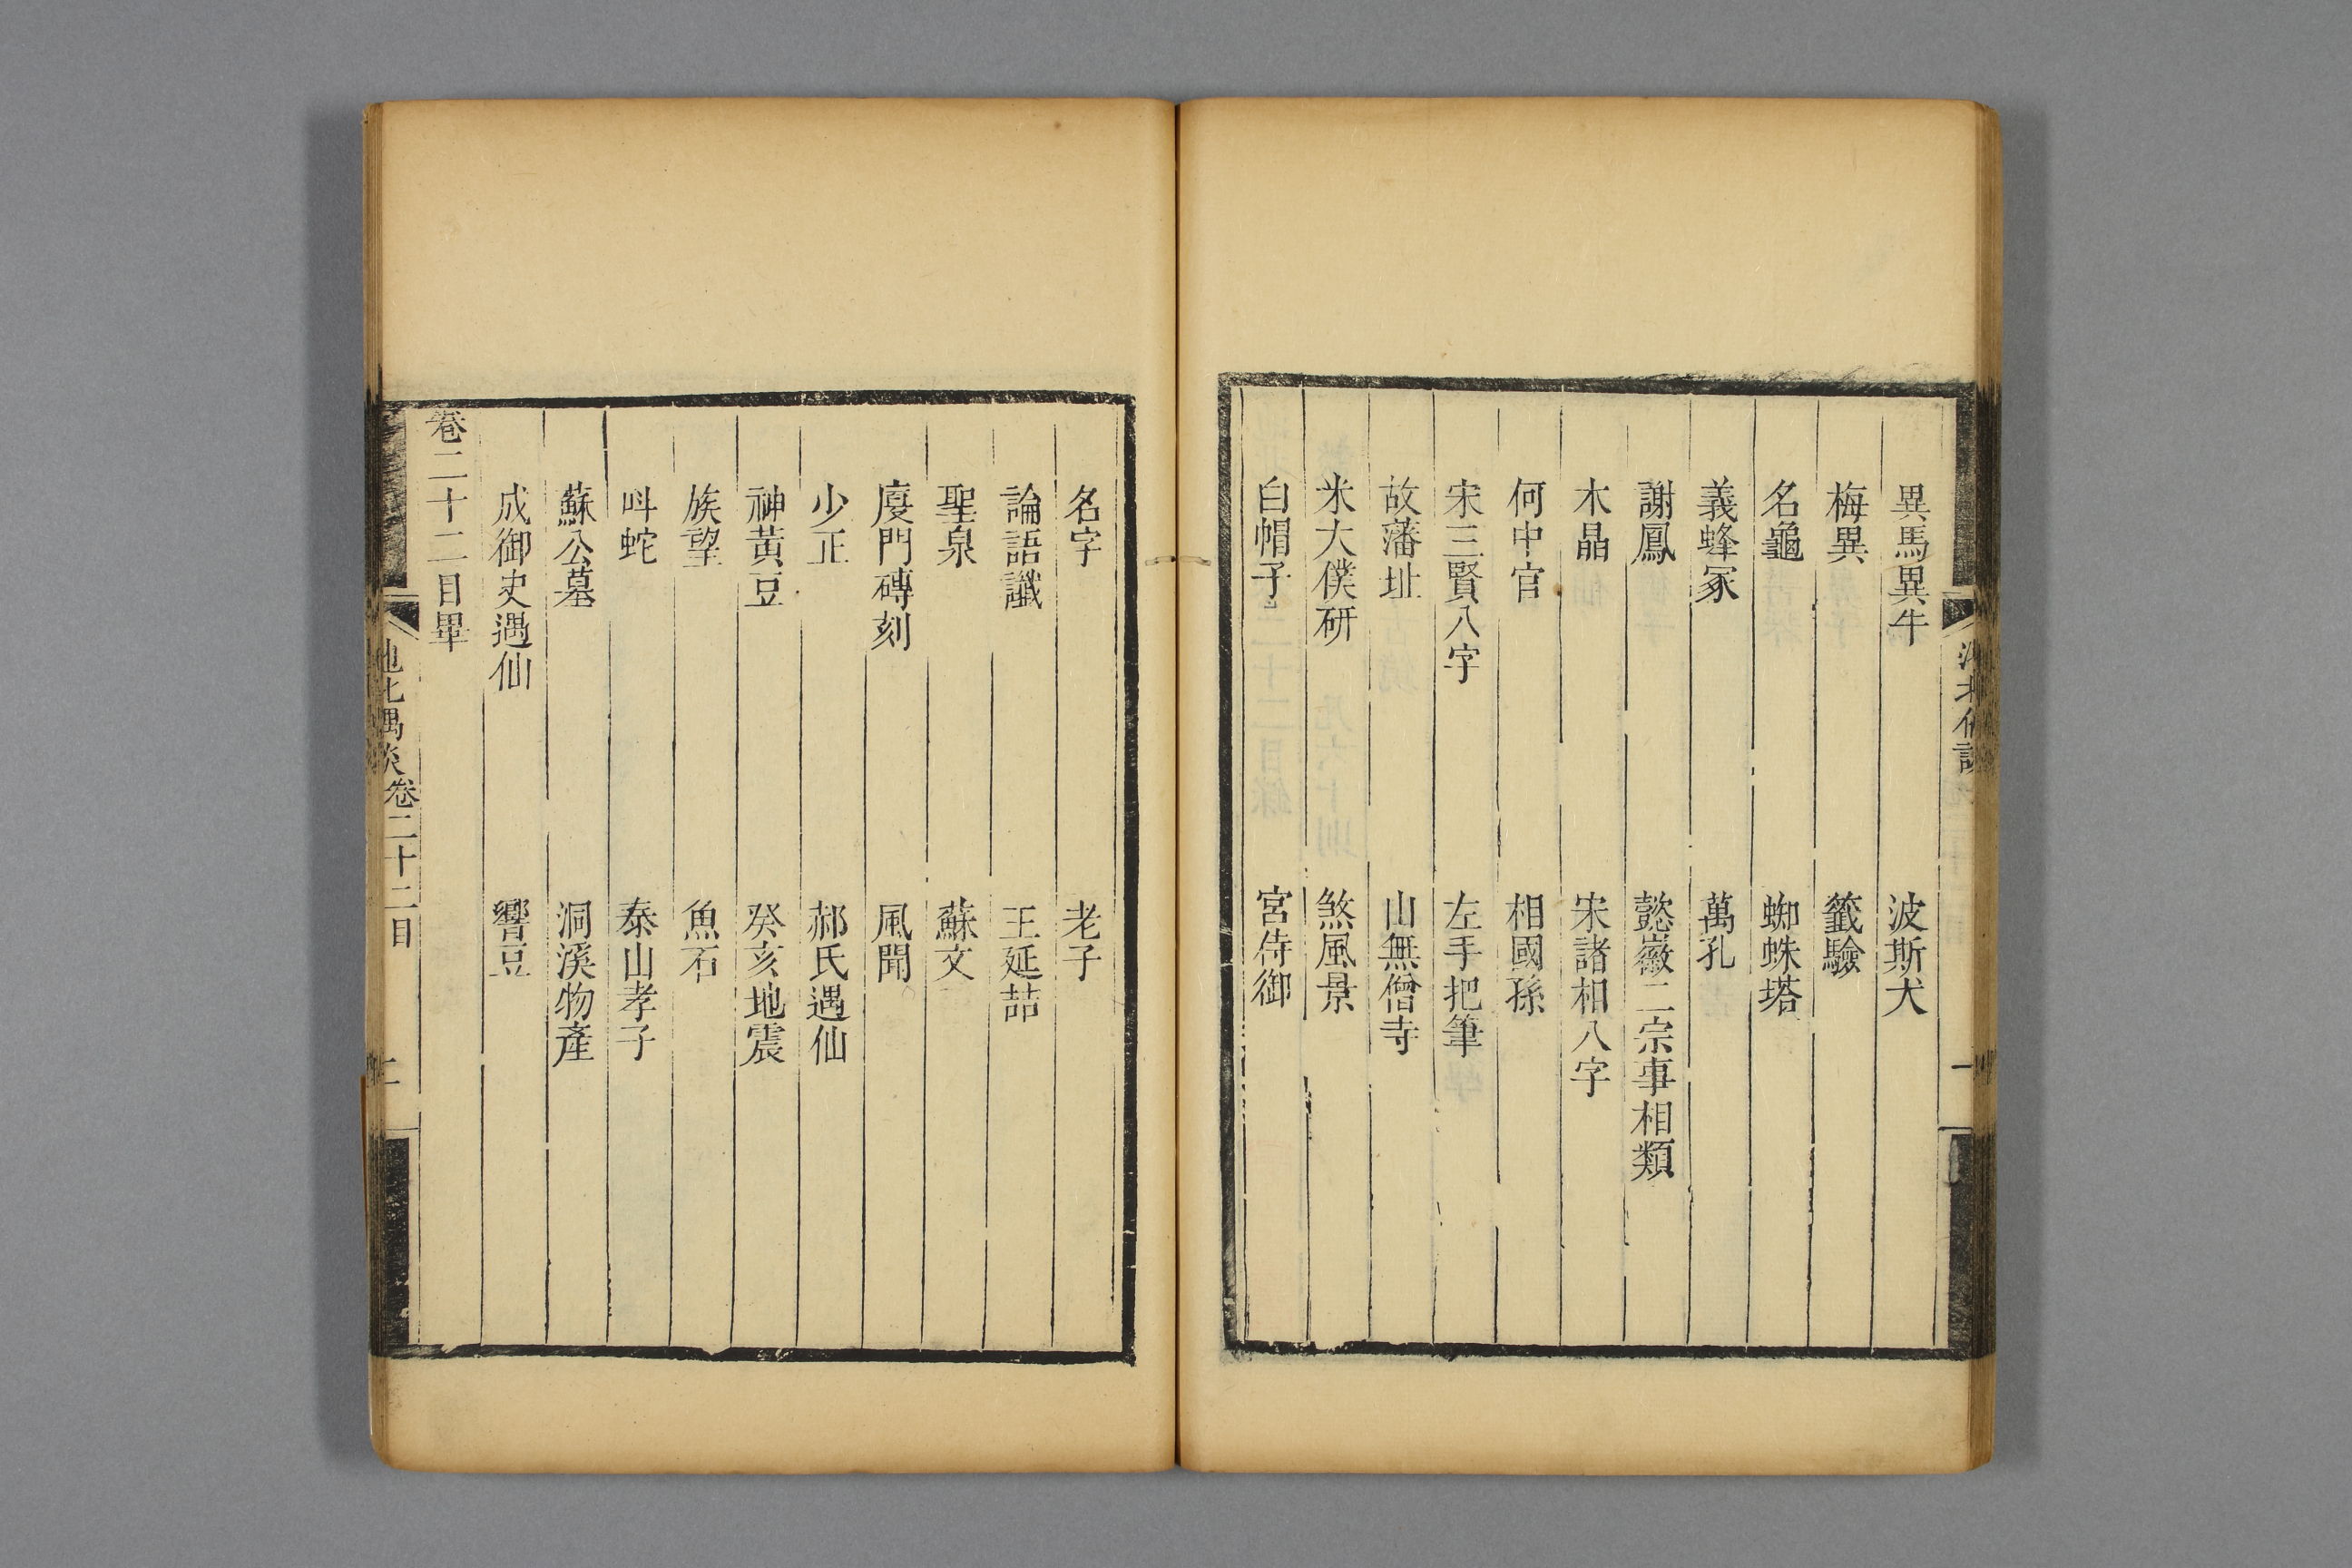 異馬異牛 波斯犬
梅異 籤驗
名龜 蜘蛛塔
義蜂冢 萬孔
謝鳳 懿徽二宗事相類
木晶 宋諸相八字
何中官 相國孫
宋三賢八字 左手把筆
故藩址 山無僧寺
米大僕研 煞風景
白帽子 宮侍御
名字 老子
論語讖 王延喆
聖泉 蘇文
廈門磚刻 風聞
少正 郝氏遇仙
神黃豆 癸亥地震
族望 魚石
呌蛇 泰山孝子
蘇公墓 洞溪物產
成御史遇仙 響豆
卷二十二目畢
池北偶談卷二十二目 二